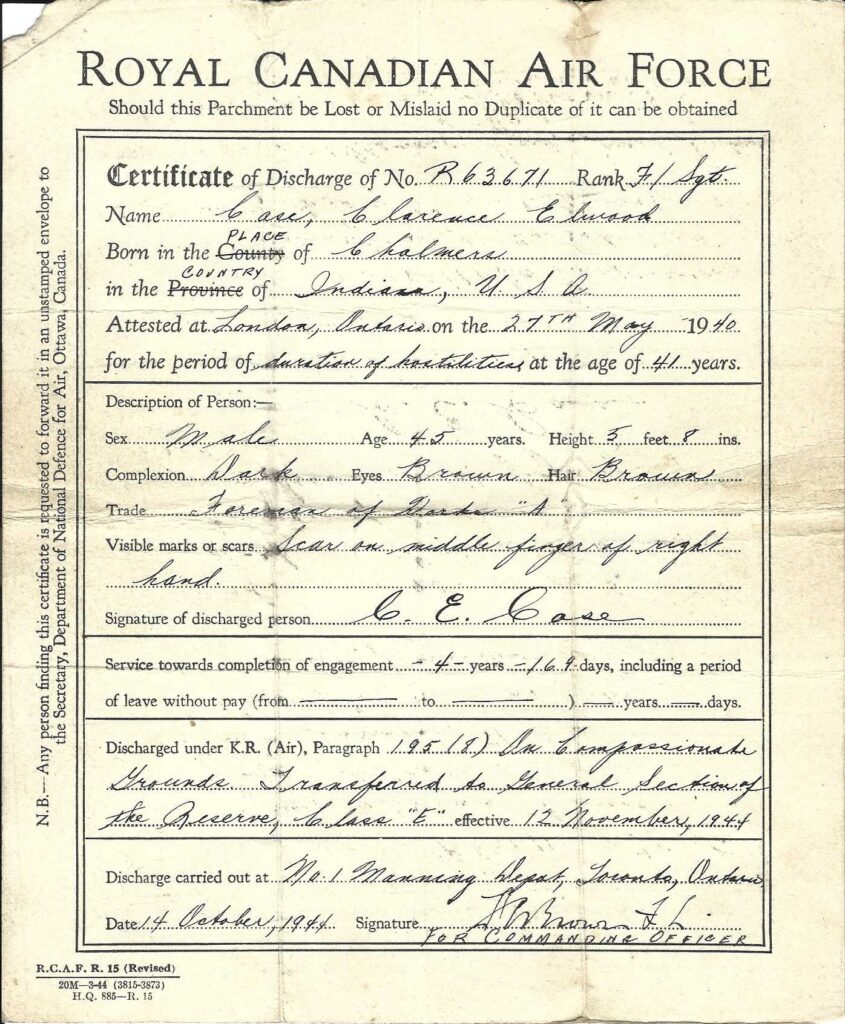 ROYAL CANADIAN AIR FORCE
Should this Parchment be Lost or Mislaid no Duplicate of it can be obtained
Certificate of Discharge of No. R63671 Rank F/Sgt.
Name Case, Clarence Elwood
PLACE
Born in the County of Chalmers
COUNTRY
in the Province of Indiana, U S A
Attested at London, Ontario on the 27TH May 1940
for the period of duration of hostilities, at the age of 41 years.
Description of Person:—
Sex Male Age 45 years. Height 5 feet 8 ins.
Complexion Dark Eyes Brown Hair Brown
Trade Foreman of Works "A"
Visible marks or scars Scar on middle finger of right
hand.
Signature of discharged person C. E. Case
Service towards completion of engagement -4- years -169 days, including a period
of leave without pay (from — to — ) — years — days.
Discharged under K.R. (Air), Paragraph 195(8) On Compassionate
Grounds. Transferred to General Section of
the Reserve, Class "E" effective 12 November, 1944
Discharge carried out at No. 1 Manning Depot, Toronto, Ontario,
Date 14 October, 1944 Signature Brown F/L
FOR COMMANDING OFFICER
N.B.—Any person finding this certificate is requested to forward it in an unstamped envelope to
the Secretary, Department of National Defence for Air, Ottawa, Canada.
R.C.A.F. R. 15 (Revised)
20M—3-44 (3815-3873)
H.Q. 885—R. 15